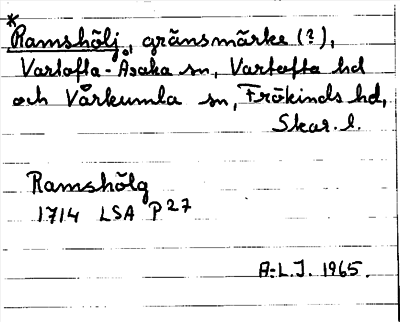 *
Ramshölj, gränsmärke (?),
Vartofta-Åsaka sn, Vartofta hd
och Vårkumla sn, Frökinds hd,
Skar. l.
Ramshölg
1714 LSA P27
A-L.J. 1965.